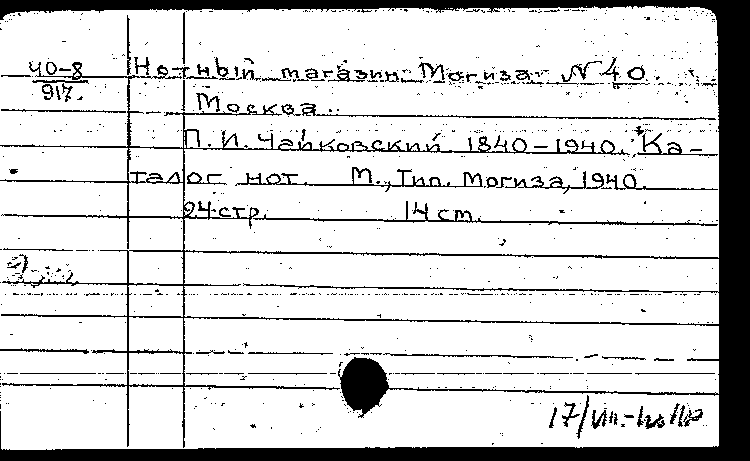 40-8
917.
Нотный магазин Могиза N 40.
Москва.
П. И. Чайковский 1840-1940. Ка-
талог нот. М., Тип. Могиза, 1940.
24 стр. 14 cm.
17/VII.-